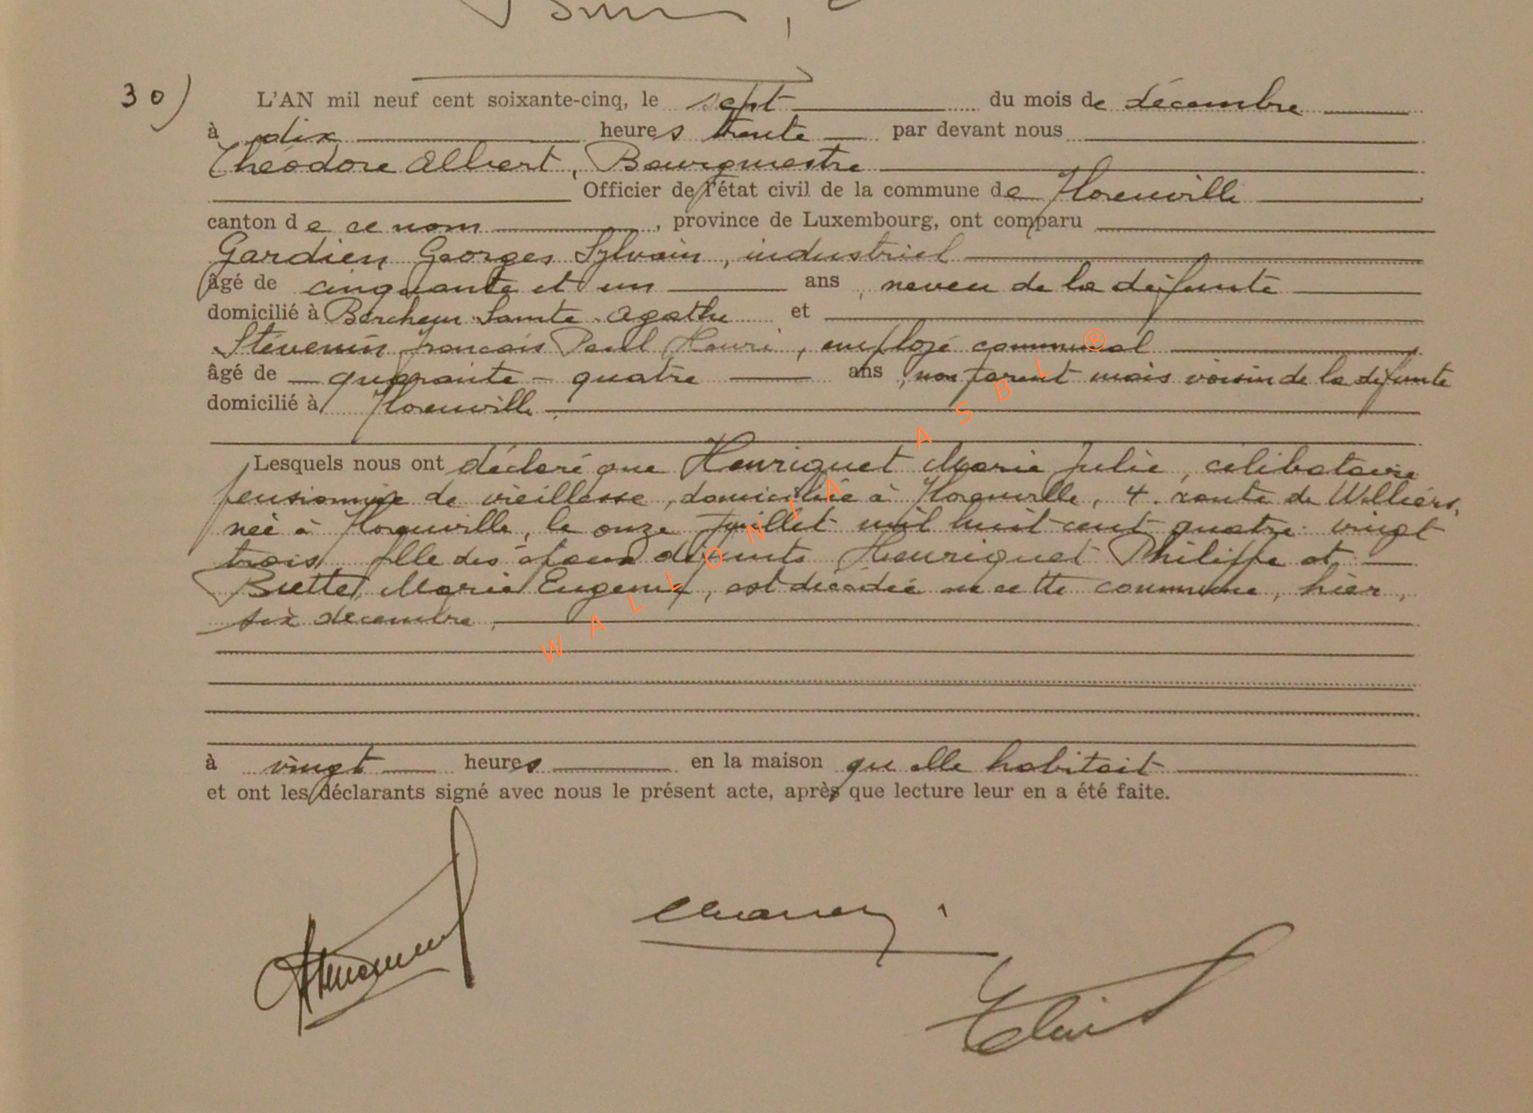 30) L'AN mil neuf cent soixante-cinq, le sept du mois de décembre
à dix heures trente par devant nous
Théodore Albert, Bourgmestre
Officier de l'état civil de la commune de Florenville
canton de ce nom, province de Luxembourg, ont comparu
Gardien Georges Sylvain, industriel
âgé de cinquante et un ans, neveu de la défunte
domicilié à Berchem Sainte Agathe et
Stévenin François Paul Henri, employé communal
âgé de quarante-quatre ans, non parent mais voisin de la défunte
domicilié à Florenville.
Lesquels nous ont déclaré que Henriquet Marie Julie, célibataire
pensionnée de vieillesse, domiciliée à Florenville, 4, route de Williers,
née à Florenville, le onze juillet mil huit cent quatre-vingt
trois, fille des époux défunts Henriquet Philippe et
Marie Eugénie, est décédée en cette commune, hier,
six décembre,
à vingt heures en la maison qu'elle habitait
et ont les déclarants signé avec nous le présent acte, après que lecture leur en a été faite.
WALLONIA ASBL ®